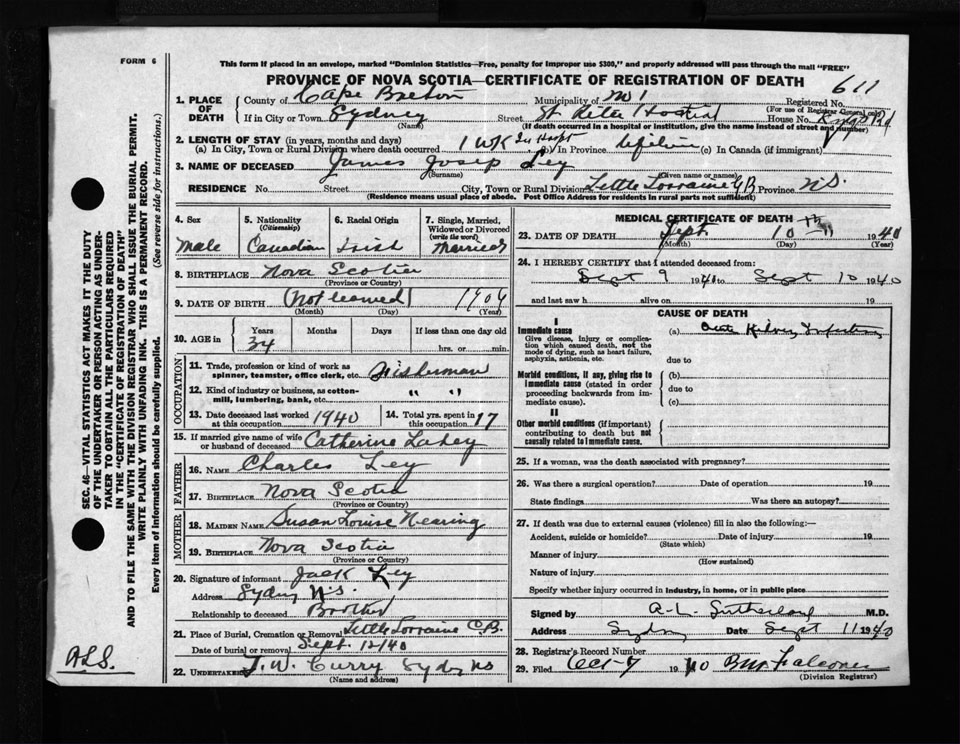 FORM 6
This form if placed in an envelope, marked "Dominion Statistics—Free, penalty for improper use $300," and properly addressed will pass through the mail "FREE"
PROVINCE OF NOVA SCOTIA—CERTIFICATE OF REGISTRATION OF DEATH
611
1. PLACE OF DEATH
County of Cape Breton Municipality of No 1 Registered No.
(For use of Registrar General only)
If in City or Town Sydney Street St Rita Hospital House No. Kings Rd
(Name) (If death occurred in a hospital or institution, give the name instead of street and number)
2. LENGTH OF STAY (in years, months and days)
(a) In City, Town or Rural Division where death occurred 1 WK In Hospt (b) In Province Lifetime (c) In Canada (if immigrant)
3. NAME OF DECEASED James Josep Ley
(Surname) (Given name or names)
RESIDENCE No. Street City, Town or Rural Division Little Lorraine CB Province NS.
(Residence means usual place of abode. Post Office Address for residents in rural parts not sufficient)
4. Sex
Male
5. Nationality
(Citizenship)
Canadian
6. Racial Origin
Irish
7. Single, Married, Widowed or Divorced
(write the word)
Married
8. BIRTHPLACE Nova Scotia
(Province or Country)
9. DATE OF BIRTH (Not learned) 1904
(Month) (Day) (Year)
10. AGE in
Years Months Days If less than one day old
34 hrs. or min.
OCCUPATION
11. Trade, profession or kind of work as spinner, teamster, office clerk, etc. Fisherman
12. Kind of industry or business, as cotton-mill, lumbering, bank, etc. " "
13. Date deceased last worked at this occupation 1940
14. Total yrs. spent in this occupation 17
15. If married give name of wife or husband of deceased Catherine Lahey
FATHER
16. NAME Charles Ley
17. BIRTHPLACE Nova Scotia
(Province or Country)
MOTHER
18. MAIDEN NAME Susan Louise Nearing
19. BIRTHPLACE Nova Scotia
(Province or Country)
20. Signature of informant Jack Ley
Address Sydney N.S.
Relationship to deceased Brother
21. Place of Burial, Cremation or Removal Little Lorraine C.B.
Date of burial or removal Sept. 12/40
22. UNDERTAKER T. W. Curry Sydney NS
(Name and address)
MEDICAL CERTIFICATE OF DEATH
23. DATE OF DEATH Sept 10 th 1940
(Month) (Day) (Year)
24. I HEREBY CERTIFY that I attended deceased from:
Sept 9 1940 to Sept 10 1940
and last saw h alive on 19
CAUSE OF DEATH
I
Immediate cause
Give disease, injury or complication which caused death, not the mode of dying, such as heart failure, asphyxia, asthenia, etc.
(a) Acute Kidney Infection
due to
Morbid conditions, if any, giving rise to immediate cause (stated in order proceeding backwards from immediate cause).
(b)
due to
(c)
II
Other morbid conditions (if important) contributing to death but not causally related to immediate cause.
25. If a woman, was the death associated with pregnancy?
26. Was there a surgical operation? Date of operation 19
State findings Was there an autopsy?
27. If death was due to external causes (violence) fill in also the following:—
Accident, suicide or homicide? Date of injury 19
(State which)
Manner of injury
(How sustained)
Nature of injury
Specify whether injury occurred in industry, in home, or in public place
Signed by A. L. Sutherland M.D.
Address Sydney Date Sept 11 1940
28. Registrar's Record Number
29. Filed Oct 7 1940 Falconer
(Division Registrar)
SEC. 46—VITAL STATISTICS ACT MAKES IT THE DUTY
OF THE UNDERTAKER OR PERSON ACTING AS UNDER-
TAKER TO OBTAIN ALL THE PARTICULARS REQUIRED
IN THE "CERTIFICATE OF REGISTRATION OF DEATH"
AND TO FILE THE SAME WITH THE DIVISION REGISTRAR WHO SHALL ISSUE THE BURIAL PERMIT.
WRITE PLAINLY WITH UNFADING INK. THIS IS A PERMANENT RECORD.
Every item of information should be carefully supplied. (See reverse side for instructions.)